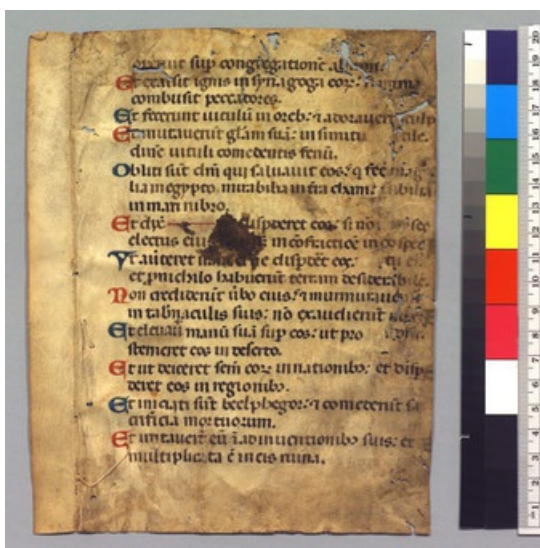 sup congregatione
Et exarsit ignis in synagoga eoꝝ:
combusit peccatores.
Et fecerunt vitulū in oreb: ⁊ adoraverūt sculp
Et mutaverūt gl̄am suā: in simitu
dinē vituli comedentis fenū.
Obliti sūt dm̄ qui salvavit eos: q fec mag
lia in egypto mirabilia in t̄ra cham:
in mari rubro.
Et dix̄ disp̄deret eos: si nō
electus in cōfractiōe in cōspec
Ut averteret ne disp̄det eos:
et p̄ nichilo habuerūt terram desiderabilē.
Non crediderūt v̄bo eius: ⁊ murmuraver
in tab̄naculis suis: nō exaudierūt
Et elevavit manū suā sup eos: ut pro
sterneret eos in deserto.
Et ut deiceret sem̄ eoꝝ in nationibꝫ: et disp̄
deret eos in regionibꝫ.
Et iniciati sūt beelphegor: ⁊ comederūt sa
crificia mortuorum.
Et irritaverūt eū ī adinventionibꝫ suis: et
multiplicata ē in eis ruina.
20
19
18
17
16
15
14
13
12
11
10
9
8
7
6
5
4
3
2
1